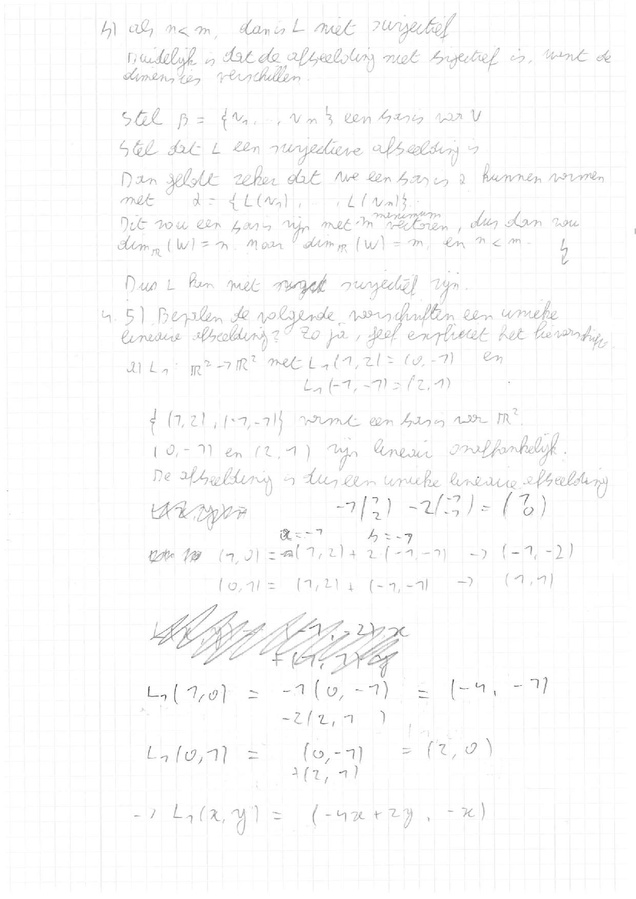 b) als n < m, dan is L niet surjectief
Duidelijk is dat de afbeelding niet bijectief is, want de
dimensies verschillen.
Stel β = {v1, ..., vn} een basis van V
Stel dat L een surjectieve afbeelding is
Dan geldt zeker dat we een basis α kunnen vormen
met α = {L(v1), ..., L(vn)}.
Dit zou een basis zijn met n minimum vectoren, dus dan zou
dim_ℝ(W) = n. maar dim_ℝ(W) = m, en n < m.
Dus L kan niet surjectief zijn.
4. 5) Bepalen de volgende voorschriften een unieke
lineaire afbeelding? Zo ja, geef expliciet het voorschrift
a) L1: ℝ² → ℝ² met L1(1,2) = (0,-1) en
L1(-1,-1) = (2,1)
{(1,2), (-1,-1)} vormt een basis van ℝ².
(0,-1) en (2,1) zijn lineair onafhankelijk.
De afbeelding is dus een unieke lineaire afbeelding
-1(1 2) -2(-1 -1) = (1 0)
a = -1 b = -1
(1,0) = -(1,2) + 2(-1,-1) → (-1,-2)
(0,1) = (1,2) + (-1,-1) → (1,1)
L1(1,0) = -1(0,-1) = (-4, -1)
-2(2,1)
L1(0,1) = (0,-1) = (2,0)
+(2,1)
→ L1(x,y) = (-4x+2y, -x)